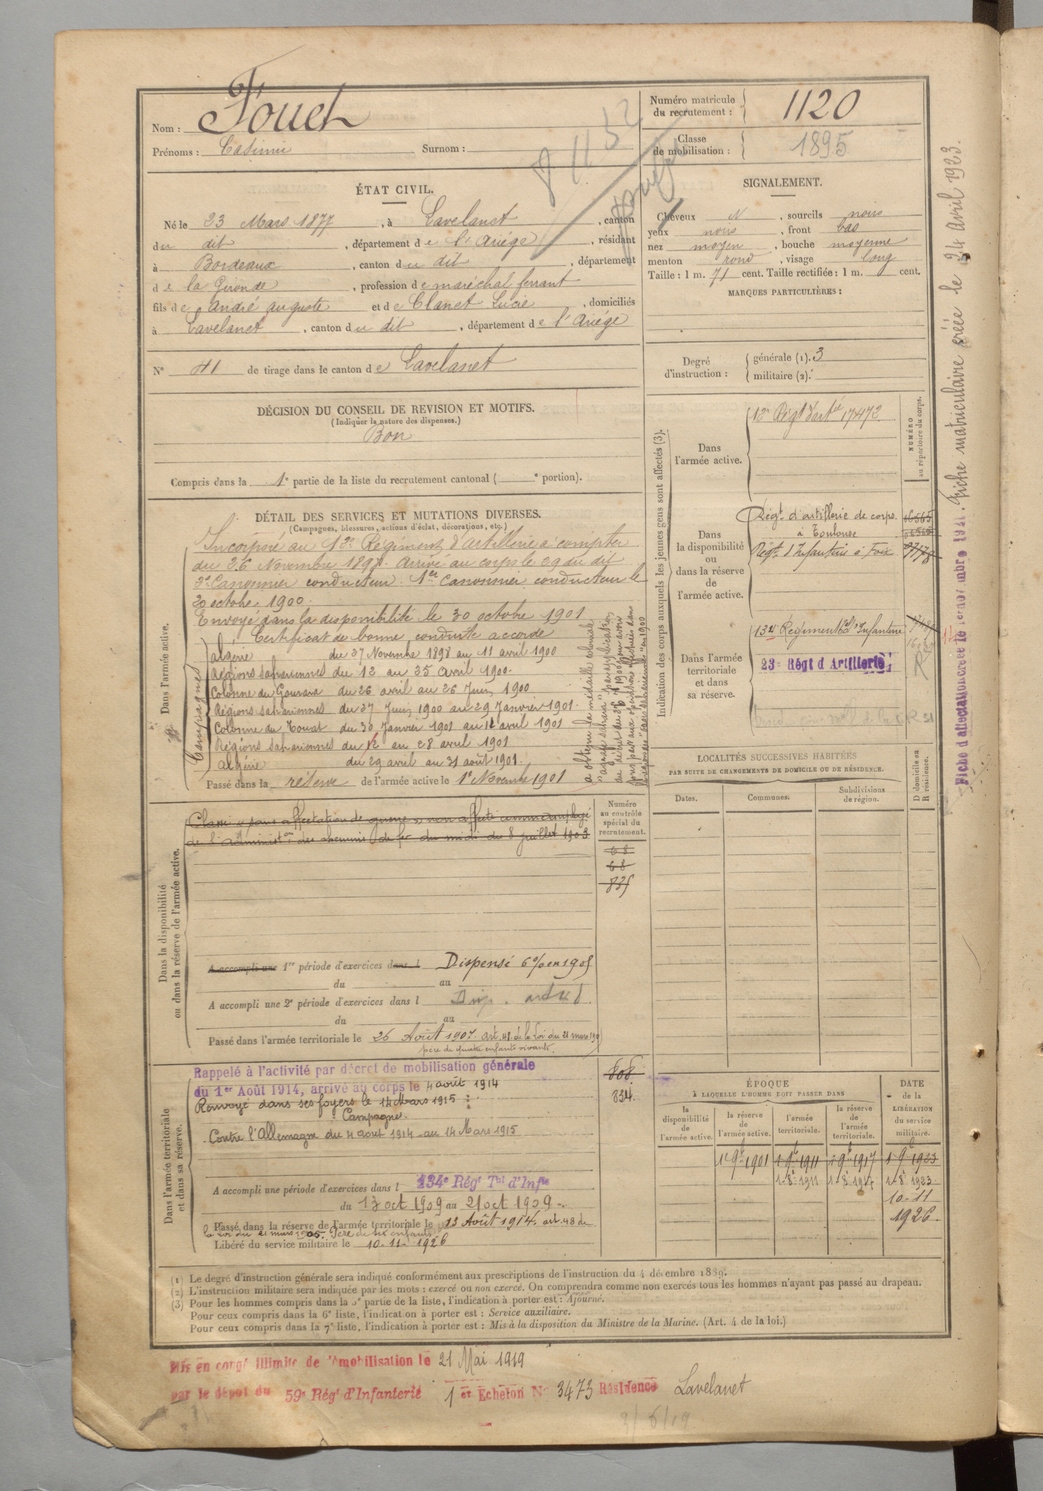 Nom : Fouet
Prénoms : Casimir Surnom :
Numéro matricule du recrutement : 1120
Classe de mobilisation : 1895
ÉTAT CIVIL.
Né le 23 Mars 1877, à Lavelanet, canton
du dit, département de l'Ariège, résidant
à Bordeaux, canton du dit, département
de la Gironde, profession de maréchal ferrant
fils de André auguste et de Clanet Lucie, domiciliés
à Lavelanet, canton du dit, département de l'Ariége
N° 41 de tirage dans le canton de Lavelanet
SIGNALEMENT.
Cheveux N, sourcils noirs
yeux noirs, front bas
nez moyen, bouche moyenne
menton rond, visage long
Taille : 1 m. 71 cent. Taille rectifiée : 1 m. cent.
MARQUES PARTICULIÈRES :
Degré d'instruction : générale (1). 3
militaire (2).
DÉCISION DU CONSEIL DE REVISION ET MOTIFS.
(Indiquer la nature des dispenses.)
Bon
Compris dans la 1e partie de la liste du recrutement cantonal ( e portion).
DÉTAIL DES SERVICES ET MUTATIONS DIVERSES.
(Campagnes, blessures, actions d'éclat, décorations, etc.)
Dans l'armée active.
Incorporé au 12e Régiment d'artillerie à compter
du 26 Novembre 1898. Arrivé au corps le 29 du dit
2e Canonnier conducteur. 1er Canonnier conducteur le
octobre 1900.
Envoyé dans la disponibilité le 30 octobre 1901
Certificat de bonne conduite accordé
Campagnes
Algérie du 27 Novembre 1898 au 11 avril 1900
Régions sahariennes du 12 au 25 avril 1900.
Colonne du Gourara du 26 avril au 26 Juin 1900
Régions sahariennes du 27 Juin 1900 au 29 Janvier 1901
Colonne du Touat du 30 Janvier 1901 au 11 avril 1901
Régions sahariennes du 12 au 28 avril 1901
Algérie du 29 avril au 31 août 1901
Passé dans la réserve de l'armée active le 1er Novembre 1901
Indication des corps auxquels les jeunes gens sont affectés (3).
NUMÉRO au répertoire du corps.
Dans l'armée active. 12e Régt d'artie 17472
Dans la disponibilité ou dans la réserve de l'armée active.
Régt d'artillerie de corps
à Toulouse
Régt d'Infanterie à Foix
Dans l'armée territoriale et dans sa réserve.
134 Régiment d'Infanterie
23e Régt d'Artillerie
R
LOCALITÉS SUCCESSIVES HABITÉES
PAR SUITE DE CHANGEMENTS DE DOMICILE OU DE RÉSIDENCE.
Dates. Communes. Subdivisions de région. D domicile ou R résidence.
Dans la disponibilité ou dans la réserve de l'armée active.
Classé "pour affectation de guerre" non affecté comme employé
de l'administon des chemins de fer du midi du 8 juillet 1903
Numéro au contrôle spécial du recrutement.
68
68
835
A accompli une 1re période d'exercices dans l Dispensé
du au
A accompli une 2e période d'exercices dans l
du au
Passé dans l'armée territoriale le 26 Août 1907 art 48 de la loi du 21 mars 190
père de quatre enfants vivants.
Dans l'armée territoriale et dans sa réserve.
Rappelé à l'activité par décret de mobilisation générale
du 1er Août 1914, arrivé au corps le 4 août 1914
Renvoyé dans ses foyers le 14 Mars 1915
Campagne
Contre l'Allemagne du 4 août 1914 au 14 Mars 1915
808
834
A accompli une période d'exercices dans l 134e Régt Tal d'Infie
du 13 oct 1909 au 21 oct 1909
Passé dans la réserve de l'armée territoriale le 13 Août 1914 art. 48 de
la loi du 21 mars 1905. Père de six enfants
Libéré du service militaire le 10-11-1926
ÉPOQUE
À LAQUELLE L'HOMME DOIT PASSER DANS
la disponibilité de l'armée active. la réserve de l'armée active. l'armée territoriale. la réserve de l'armée territoriale.
DATE de la LIBÉRATION du service militaire.
1er 9bre 1901 1er 9bre 1911 1er 9bre 1917 1er 9bre 1923
1er 8bre 1911 1er 8bre 1917 1er 8bre 1923
10-11
1926
(1) Le degré d'instruction générale sera indiqué conformément aux prescriptions de l'instruction du 4 décembre 1889.
(2) L'instruction militaire sera indiquée par les mots : exercé ou non exercé. On comprendra comme non exercés tous les hommes n'ayant pas passé au drapeau.
(3) Pour les hommes compris dans la 5e partie de la liste, l'indication à porter est : Ajourné.
Pour ceux compris dans la 6e liste, l'indication à porter est : Service auxiliaire.
Pour ceux compris dans la 7e liste, l'indication à porter est : Mis à la disposition du Ministre de la Marine. (Art. 4 de la loi.)
Mis en congé illimité de démobilisation le 21 Mai 1919
par le dépôt du 59e Régt d'Infanterie 1er Echelon N° 3473 Résidence Lavelanet
Fiche matriculaire créée le 24 Avril 1923.